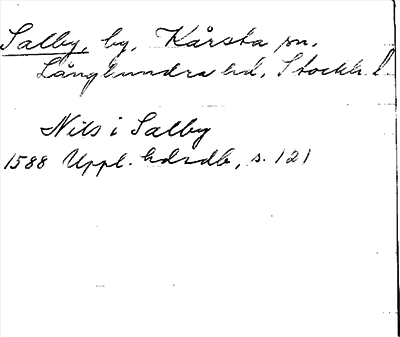 Salby, by, Kårsta sn.
Långhundra hd, Stockh. l.
Nils i Salby
1588 Uppl. hdrdb, s. 121